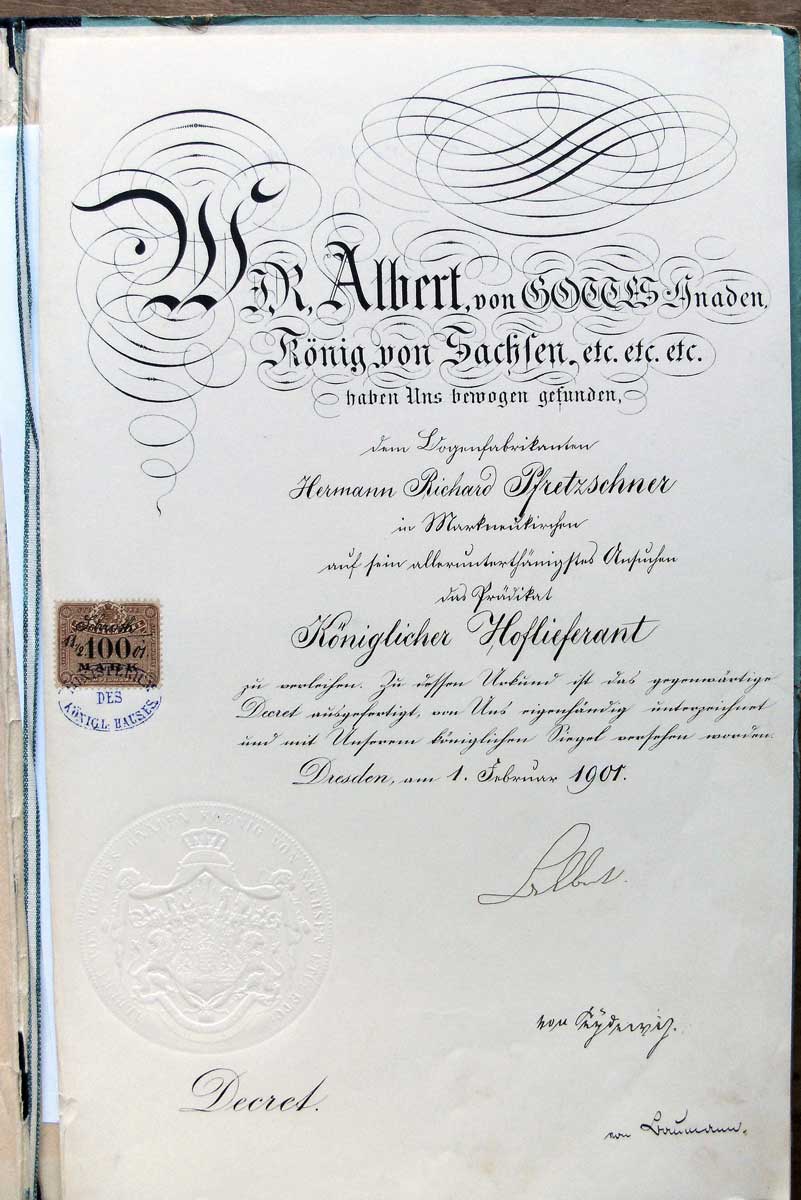 WIR, Albert, von GOTTES Gnaden,
König von Sachsen, etc. etc. etc.
haben Uns bewogen gefunden,
dem Bogenfabrikanten
Hermann Richard Pfretzschner
in Markneukirchen
auf sein allerunterthänigstes Ansuchen
das Prädikat
Königlicher Hoflieferant
zu verleihen. Zu dessen Urkund ist das gegenwärtige
Decret ausgefertigt, von Uns eigenhändig unterzeichnet
und mit Unserem königlichen Siegel versehen worden.
Dresden, am 1. Februar 1901.
100
MARK
MINISTERIUM
DES
KÖNIGL. HAUSES.
Albert.
von Seydewitz.
Decret.
von Baumann.